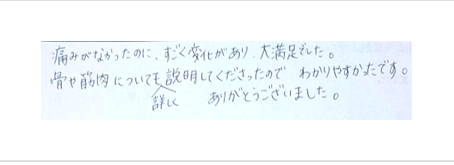 痛みがなかったのに、すごく変化があり、大満足でした。
骨や筋肉についても詳しく説明してくださったので わかりやすかったです。
ありがとうございました。